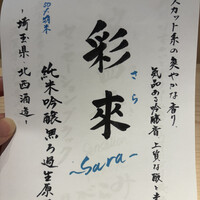 スカット系の爽やかな香り、
気品ある吟醸香 上質な酸と
彩來
さら
~Sara~
純米吟醸 無ろ過生原
~埼玉県 北西酒造~